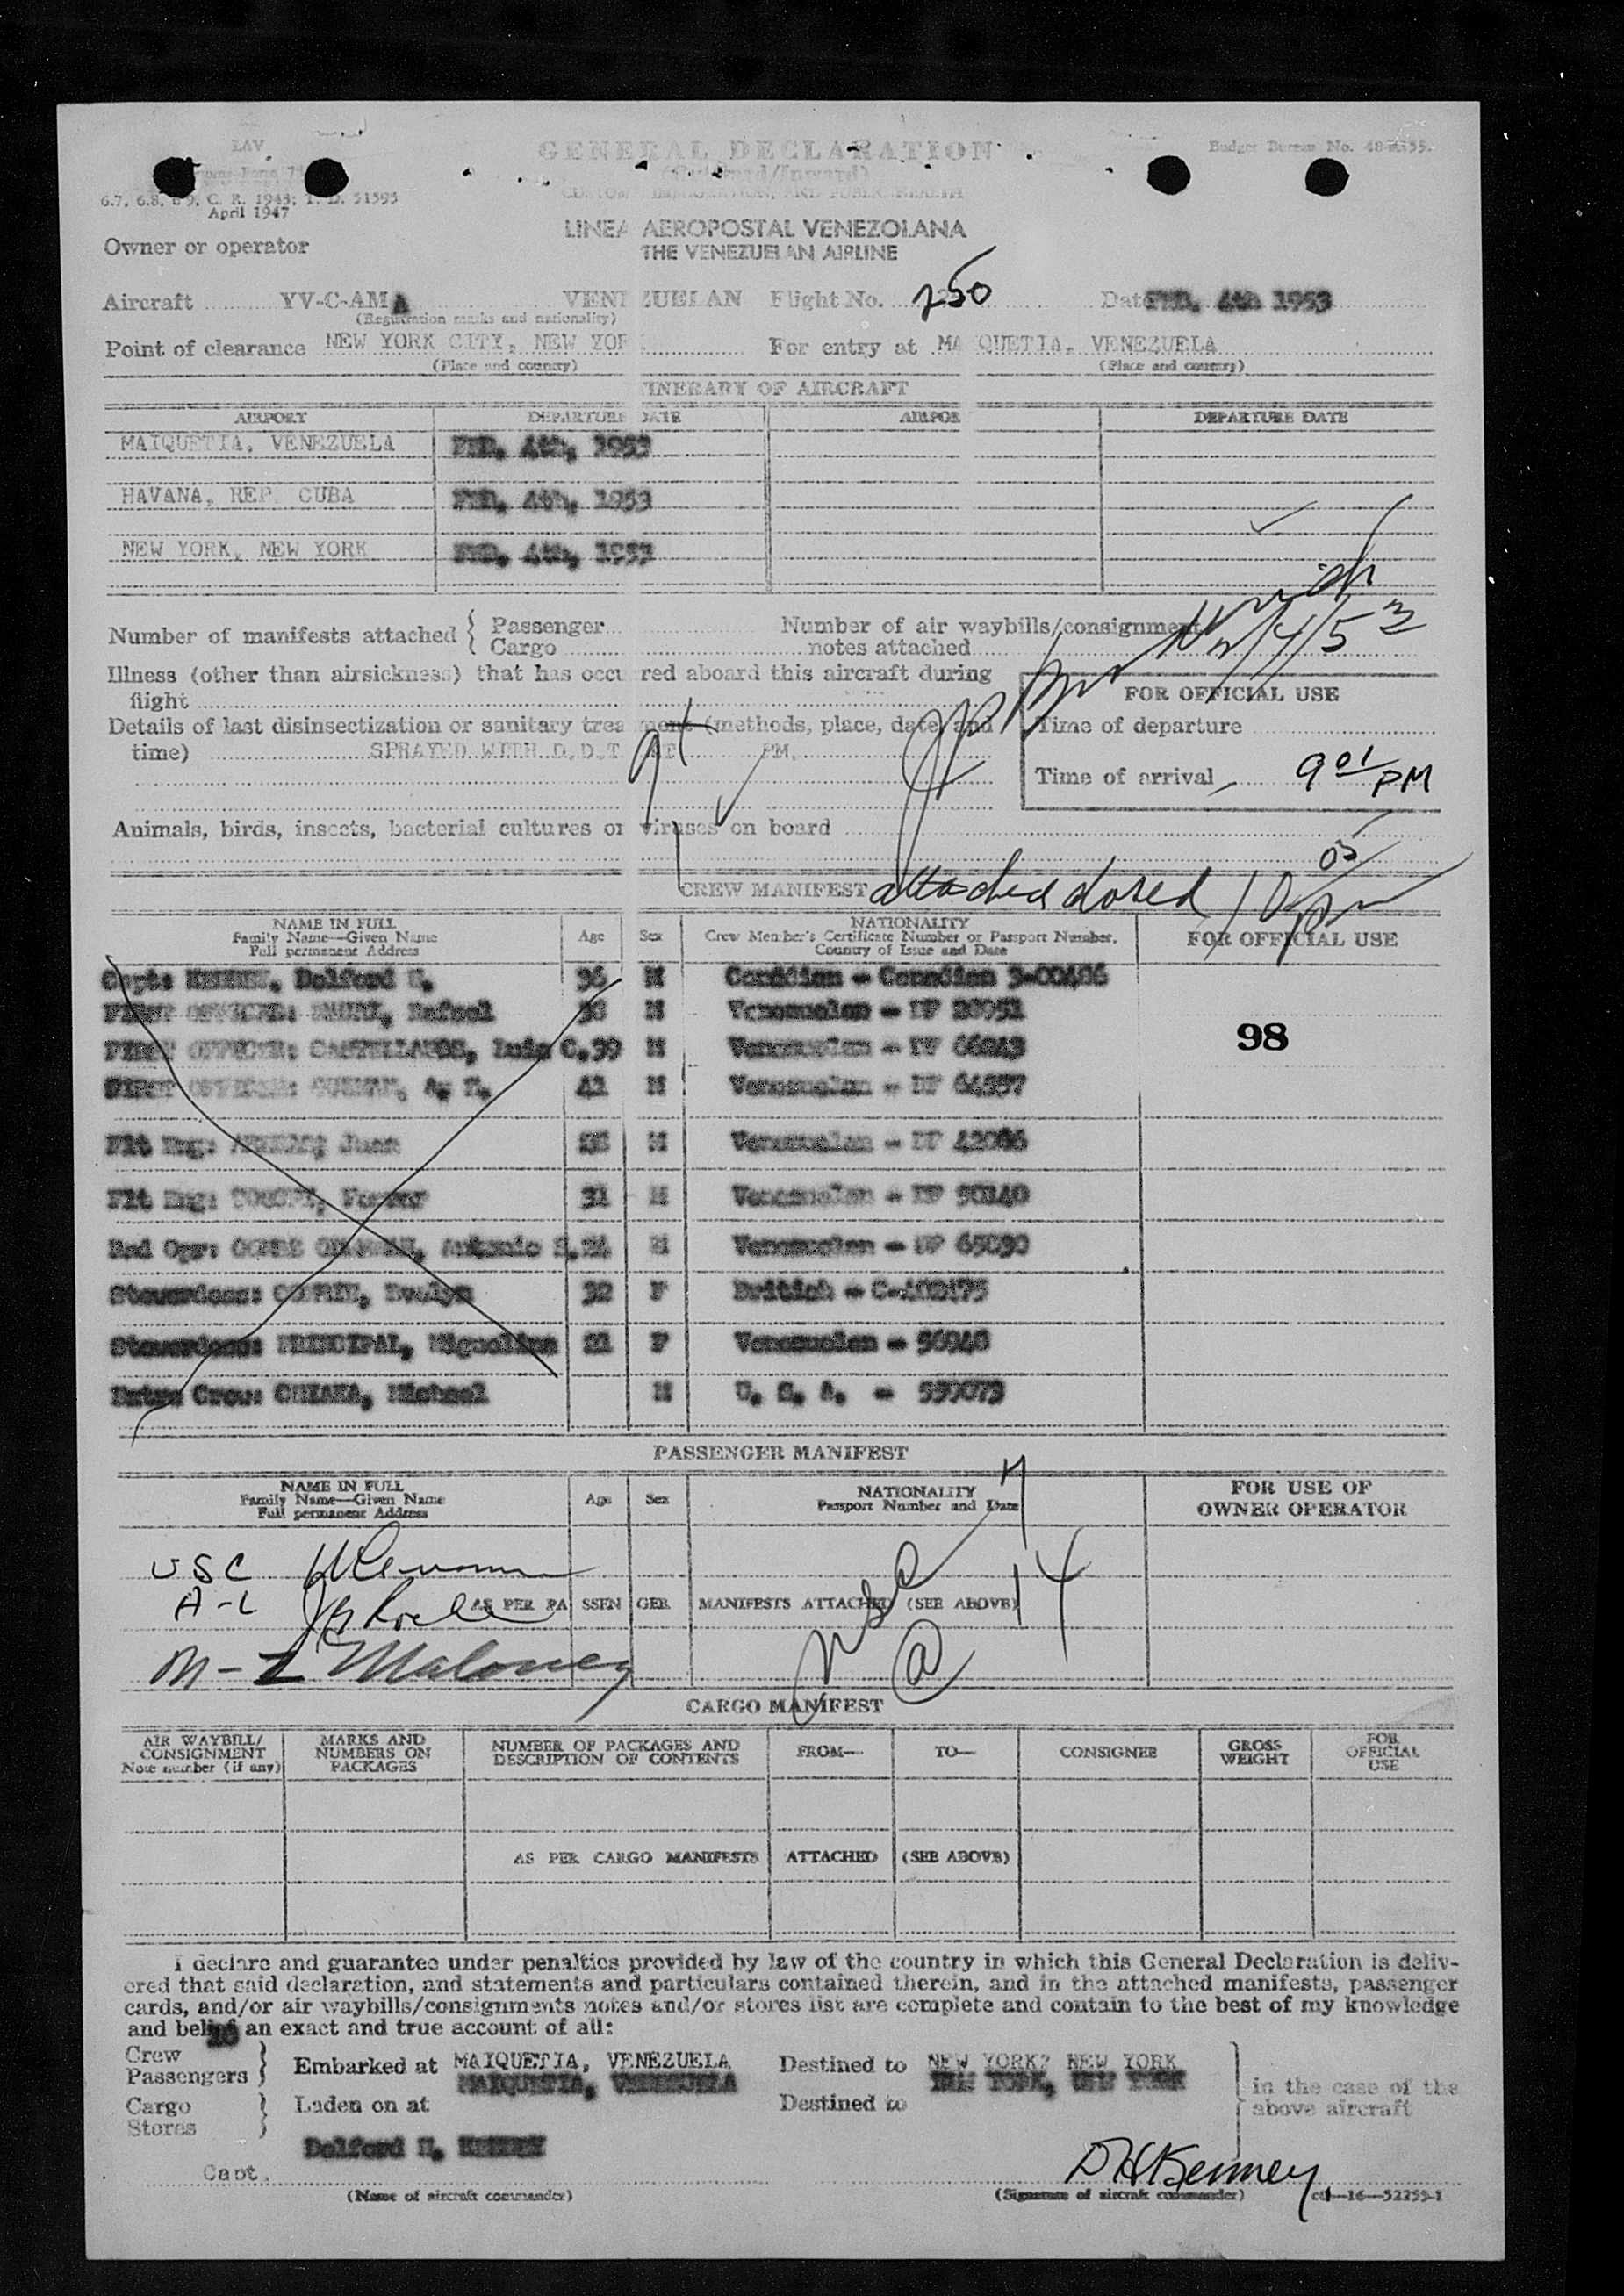 LAV
GENERAL DECLARATION
Budget Bureau No.
(Outward/Inward)
6.7, 6.8, 6.9, C. R. 1943; T. D. 51595
April 1947
LINEA AEROPOSTAL VENEZOLANA
THE VENEZUELAN AIRLINE
Owner or operator
Aircraft YV-C-AMA VENEZUELAN Flight No. 250 Date FEB. 4th 1953
(Registration marks and nationality)
Point of clearance NEW YORK CITY, NEW YOR For entry at MA QUETIA, VENEZUELA
(Place and country) (Place and country)
ITINERARY OF AIRCRAFT
AIRPORT DEPARTURE DATE AIRPOR DEPARTURE DATE
MAIQUETIA, VENEZUELA FEB. 4th, 1953
HAVANA, REP. CUBA FEB. 4th, 1953
NEW YORK, NEW YORK FEB. 4th, 1953
2/4/53
Number of manifests attached { Passenger
Cargo
Number of air waybills/consignment
notes attached
Illness (other than airsickness) that has occurred aboard this aircraft during
flight
FOR OFFICIAL USE
Details of last disinsectization or sanitary treatment (methods, place, date, and
time) SPRAYED WITH D.D.T AT PM.
Time of departure
Time of arrival 9 01 PM
Animals, birds, insects, bacterial cultures or viruses on board
CREW MANIFEST attached
NAME IN FULL
Family Name—Given Name
Full permanent Address
Age Sex
NATIONALITY
Crew Member's Certificate Number or Passport Number,
Country of Issue and Date
FOR OFFICIAL USE
Capt: KENNEY, Delford H. 36 M Canadian - Canadian 3-00486
FIRST OFFICER: Rafael 38 M Venezuelan - DP 28951
FIRST OFFICER: CASTELLANOS, Luis C. 39 M Venezuelan - DP 66243
98
FIRST OFFICER: 41 M Venezuelan - DP 64557
Flt Eng: Juan M Venezuelan - DP 42086
Flt Eng: 31 M Venezuelan - DP 50140
Rad Opr: Antonio 24 M Venezuelan - DP 65030
Stewardess: Evelyn 32 F British - C-402175
Stewardess: PRINCIPAL, Mignolina 21 F Venezuelan - 56940
Extra Crew: Michael M U. S. A. - 559073
PASSENGER MANIFEST
NAME IN FULL
Family Name—Given Name
Full permanent Address
Age Sex
NATIONALITY
Passport Number and Date
FOR USE OF
OWNER OPERATOR
USC
A-L
AS PER PA SSEN GER MANIFESTS ATTACHED (SEE ABOVE) 14
M-L Maloney
CARGO MANIFEST
AIR WAYBILL/
CONSIGNMENT
Note number (if any)
MARKS AND
NUMBERS ON
PACKAGES
NUMBER OF PACKAGES AND
DESCRIPTION OF CONTENTS
FROM— TO— CONSIGNEE
GROSS
WEIGHT
FOR
OFFICIAL
USE
AS PER CARGO MANIFESTS ATTACHED (SEE ABOVE)
I declare and guarantee under penalties provided by law of the country in which this General Declaration is deliv-
ered that said declaration, and statements and particulars contained therein, and in the attached manifests, passenger
cards, and/or air waybills/consignments notes and/or stores list are complete and contain to the best of my knowledge
and belief an exact and true account of all:
Crew
Passengers } Embarked at MAIQUETIA, VENEZUELA Destined to NEW YORK? NEW YORK
MAIQUETIA, VENEZUELA NEW YORK, NEW YORK
in the case of the
above aircraft
Cargo
Stores } Laden on at Destined to
Delford H. KENNEY
Capt. D H Kenney
(Name of aircraft commander) (Signature of aircraft commander) 16—52255-1